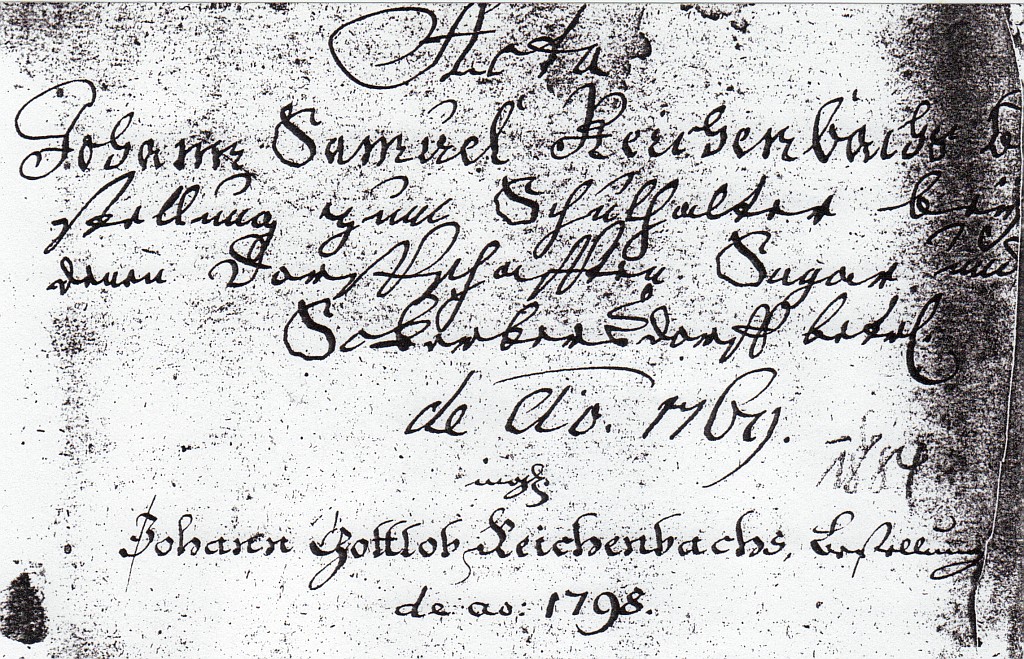 Acta
Johann Samuel Reichenbachs be
stellung zum Schulhalter bey
denen Dorffschafften Sagar und
Sckerbersdorff betrl.
de Ao. 1769.
ingl.
Johann Gottlob Reichenbachs, bestellung
de ao: 1798.